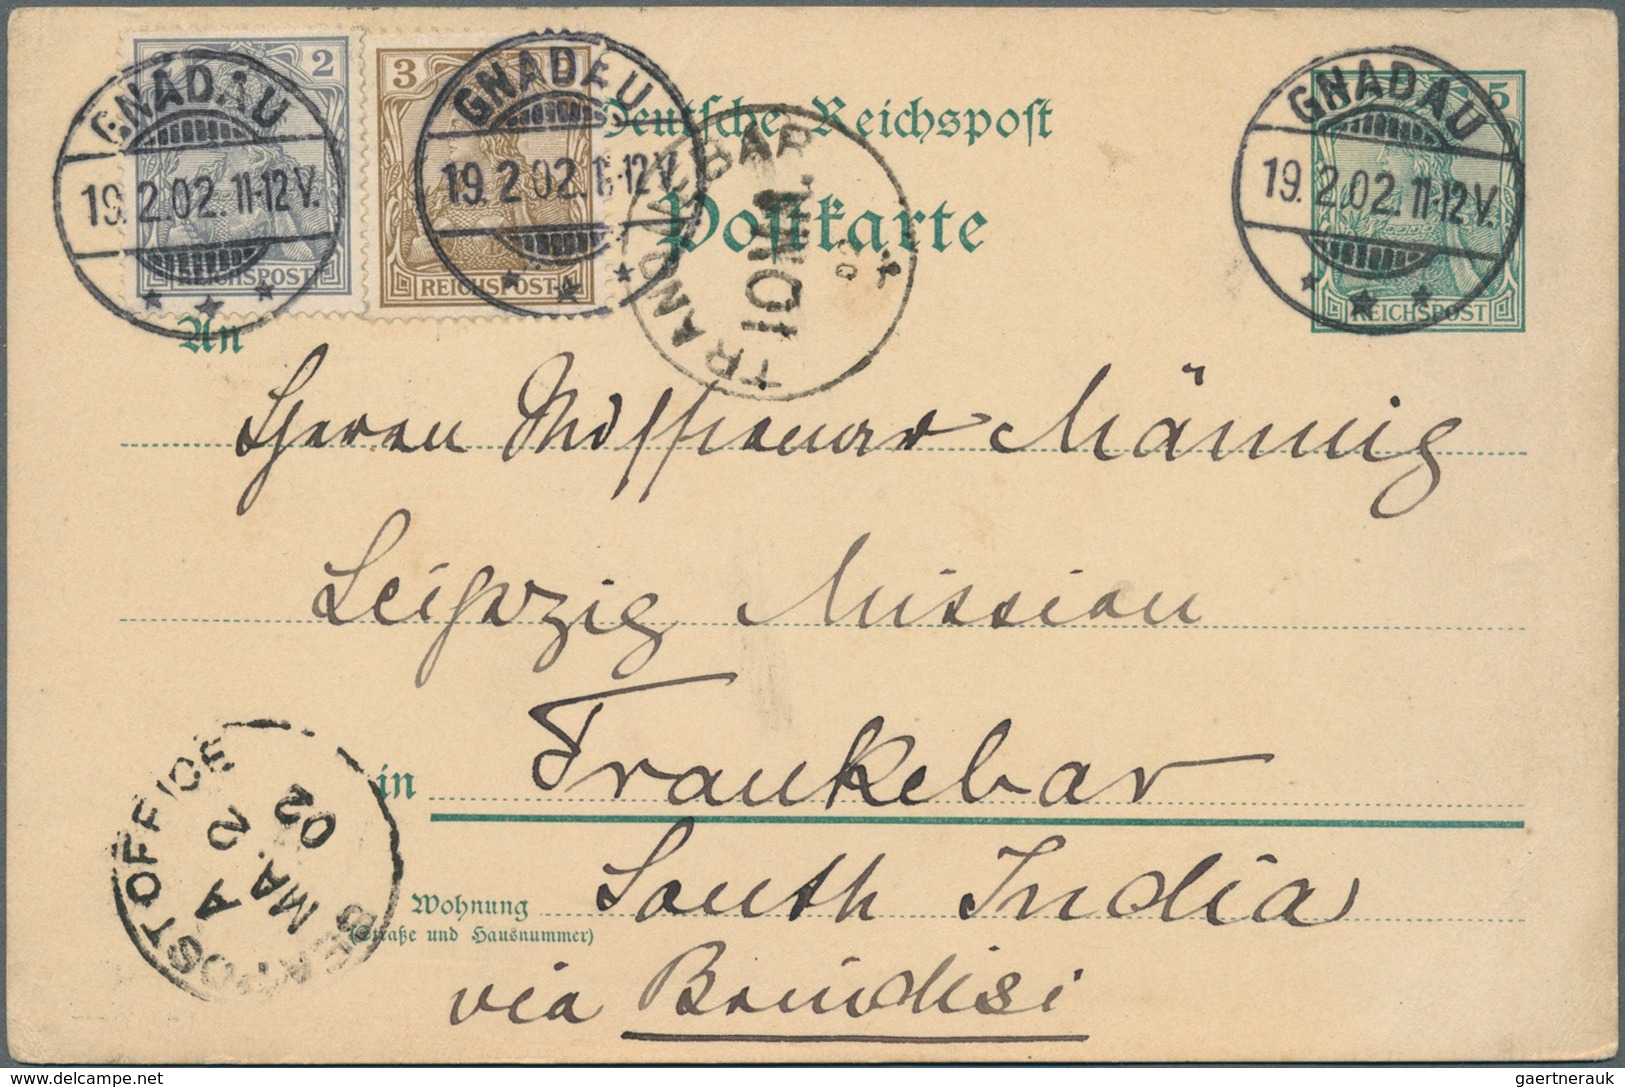 2
3
5
REICHSPOST
REICHSPOST
REICHSPOST
GNADAU
19.2.02.11-12V.
GNADAU
19.2.02.11-12V.
GNADAU
19.2.02.11-12V.
Deutsche Reichspost
Postkarte
TRANQUEBAR
10 M
02
An
Herrn Missionar Männig
Leipzig Mission
in Trankebar
Wohnung South India
(Straße und Hausnummer)
via Brindisi
SEA POST OFFICE
A
2 MA.
02
B
delcampe.net
gaertnerauk